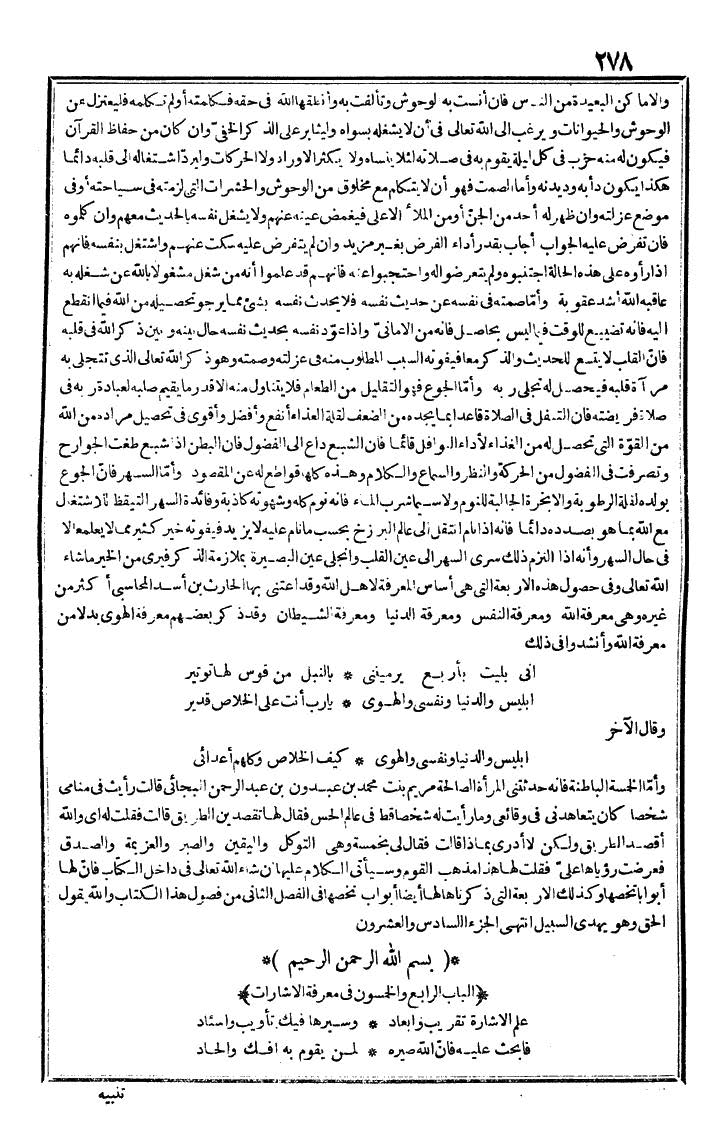 ٢٧٨
والاماكن البعيدة من الناس فان أنست به الوحوش وتألفت به وأنطقها الله فى حقه فكلمته أولم تكلمه فليعتزل عن
الوحوش والحيوانات ويرغب الى الله تعالى فى أن لا يشغله بسواه وليثابر على الذكر الخفىّ وان كان من حفاظ القرآن
فيكون له منه حزب فى كل ليلة يقوم به فى صلاته لئلا ينساه ولا يكثر الاوراد ولا الحركات وليرد اشتغاله الى قلبه دائما
هكذا يكون دأبه وديدنه وأما الصمت فهو أن لا يتكلم مع مخلوق من الوحوش والحشرات التى لزمته فى سياحته أوفى
موضع عزلته وان ظهر له أحد من الجنّ أو من الملأ الاعلى فيغمض عينه عنهم ولا يشغل نفسه بالحديث معهم وان كلموه
فان تفرض عليه الجواب أجاب بقدر أداء الفرض بغير مزيد وان لم يتفرض عليه سكت عنهم واشتغل بنفسه فانهم
اذا رأوه على هذه الحالة اجتنبوه ولم يتعرضوا له واحتجبوا عنه فانهم قد علموا أنه من شغل مشغولا بالله عن شغله به
عاقبه الله أشد عقوبة وأما صمته فى نفسه عن حديث نفسه فلا يحدث نفسه بشئ مما يرجو تحصيله من الله فيما انقطع
اليه فانه تضييع للوقت فيما ليس بحاصل فانه من الامانىّ واذا عوّد نفسه بحديث نفسه حال بينه وبين ذكر الله فى قلبه
فانّ القلب لا يتسع للحديث والذكر معا فيفوته السبب المطلوب منه فى عزلته وصمته وهو ذكر الله تعالى الذى تتجلى به
مرآة قلبه فيحصل له تجلى ربه وأمّا الجوع فهو التقليل من الطعام فلا يتناول منه الا قدر ما يقيم صلبه لعبادة ربه فى
صلاة فريضته فان التنفل فى الصلاة قاعدا بما يجده من الضعف لقلة الغذاء أنفع وأفضل وأقوى فى تحصيل مراده من الله
من القوّة التى تحصل له من الغذاء لأداء النوافل قائما فان الشبع داع الى الفضول فان البطن اذا شبع طغت الجوارح
وتصرفت فى الفضول من الحركة والنظر والسماع والكلام وهذه كلها قواطع له عن المقصود وأمّا السهر فانّ الجوع
يولده لقلة الرطوبة والابخرة الجالبة للنوم ولا سيما شرب الماء فانه نوم كله وشهوته كاذبة وفائدة السهر التيقظ للاشتغال
مع الله بما هو بصدده دائما فانه اذا نام انتقل الى عالم البرزخ بحسب ما نام عليه لا يزيد فيفوته خير كثير مما لا يعلمه الا
فى حال السهر وأنه اذا التزم ذلك سرى السهر الى عين القلب وانجلى عين البصيرة بملازمة الذكر فيرى من الخير ما شاء
الله تعالى وفى حصول هذه الاربعة التى هى أساس المعرفة لاهل الله وقد اعتنى بها الحارث بن أسد المحاسبى أكثر من
غيره وهى معرفة الله ومعرفة النفس ومعرفة الدنيا ومعرفة الشيطان وقد ذكر بعضهم معرفة الهوى بدلا من
معرفة الله وأنشدوا فى ذلك
انى بليت بأربع يرميننى * بالنبل من قوس لها توتير
ابليس والدنيا ونفسى والهوى * يارب أنت على الخلاص قدير
وقال الآخر
ابليس والدنيا ونفسى والهوى * كيف الخلاص وكلهم أعدائى
وأمّا الخمسة الباطنة فانه حدثتنى المرأة الصالحة مريم بنت محمد بن عبدون بن عبد الرحمن البجائى قالت رأيت فى منامى
شخصا كان يتعاهدنى فى وقائعى وما رأيت له شخصا قط فى عالم الحس فقال لها تقصدين الطريق قالت فقلت له اى والله
أقصد الطريق ولكن لا أدرى بماذا قالت فقال لى بخمسة وهى التوكل واليقين والصبر والعزيمة والصدق
فعرضت رؤياها علىّ فقلت لها هذا مذهب القوم وسيأتى الكلام عليها ان شاء الله تعالى فى داخل الكتاب فانّ لها
أبوابا تخصها وكذلك الاربعة التى ذكرناها لها أيضا أبواب تخصها فى الفصل الثانى من فصول هذا الكتاب والله يقول
الحق وهو يهدى السبيل انتهى الجزء السادس والعشرون
*( بسم الله الرحمن الرحيم )*
﴿الباب الرابع والخمسون فى معرفة الاشارات﴾
علم الاشارة تقريب وابعاد * وسيرها فيك تأويب واسئاد
فابحث عليه فانّ الله صيره * لمن يقوم به افك والحاد
تنبيه